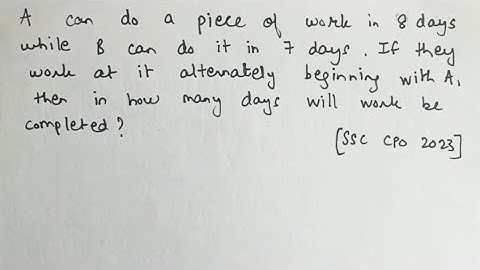 A can do a piece of work in 8 days
while B can do it in 7 days. If they
work at it alternately beginning with A,
then in how many days will work be
completed?
[SSC CPO 2023]